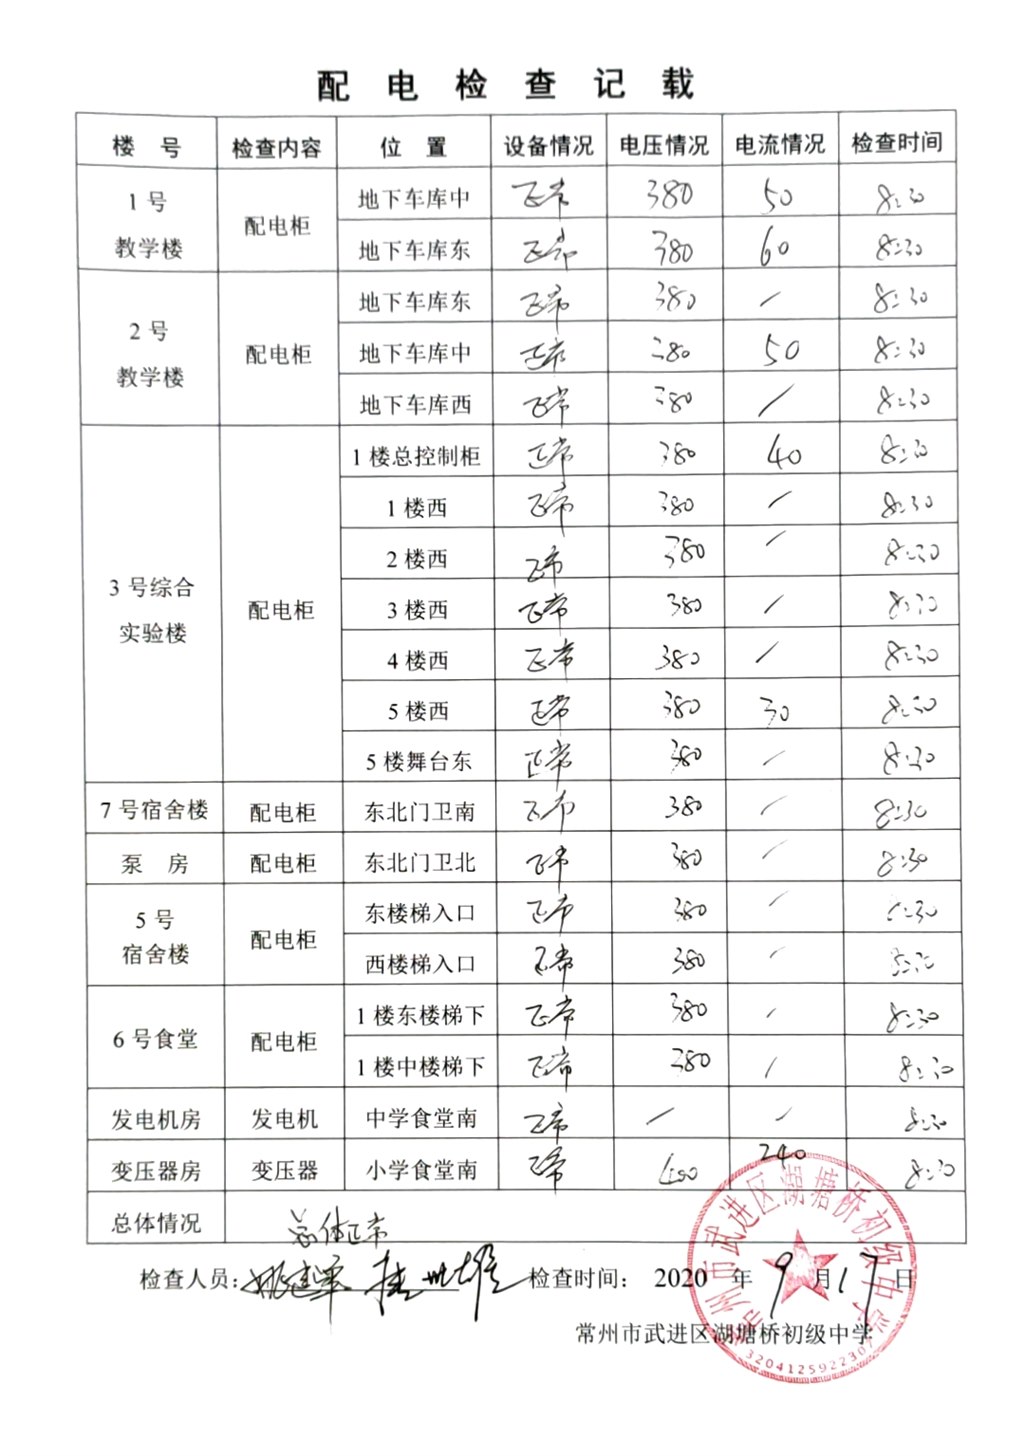 配 电 检 查 记 载
楼 号 检查内容 位 置 设备情况 电压情况 电流情况 检查时间
1号 教学楼 配电柜 地下车库中 正常 380 50 8:30
地下车库东 正常 380 60 8:30
2号 教学楼 配电柜 地下车库东 正常 380 / 8:30
地下车库中 正常 380 50 8:30
地下车库西 正常 380 / 8:30
3号综合 实验楼 配电柜 1楼总控制柜 正常 380 40 8:30
1楼西 正常 380 / 8:30
2楼西 正常 380 / 8:30
3楼西 正常 380 / 8:30
4楼西 正常 380 / 8:30
5楼西 正常 380 30 8:30
5楼舞台东 正常 380 / 8:30
7号宿舍楼 配电柜 东北门卫南 正常 380 / 8:30
泵 房 配电柜 东北门卫北 正常 380 / 8:30
5号 宿舍楼 配电柜 东楼梯入口 正常 380 / 8:30
西楼梯入口 正常 380 / 8:30
6号食堂 配电柜 1楼东楼梯下 正常 380 / 8:30
1楼中楼梯下 正常 380 / 8:30
发电机房 发电机 中学食堂南 正常 / / 8:30
变压器房 变压器 小学食堂南 正常 240 8:30
总体情况 总体正常
检查人员: 检查时间: 2020 年 9 月 17 日
常州市武进区湖塘桥初级中学
常州市武进区湖塘桥初级中学